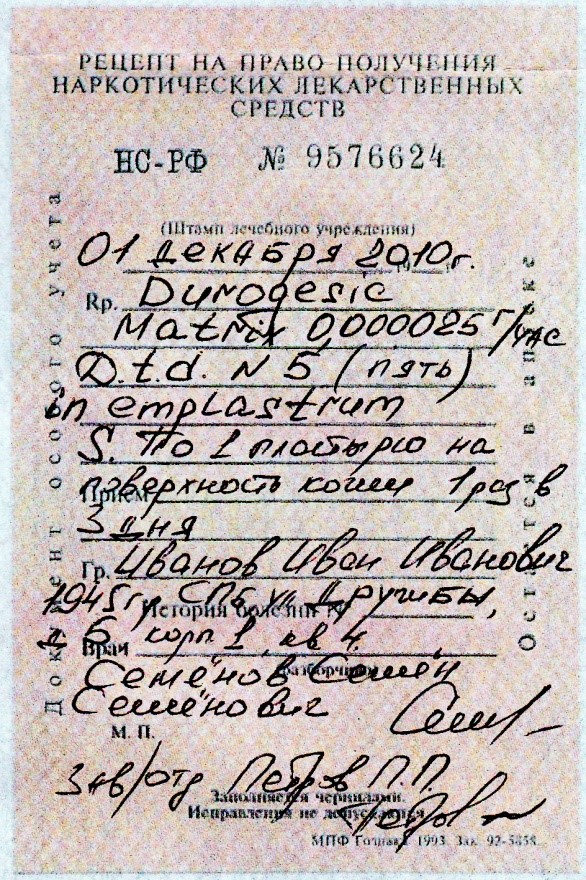 РЕЦЕПТ НА ПРАВО ПОЛУЧЕНИЯ
НАРКОТИЧЕСКИХ ЛЕКАРСТВЕННЫХ
СРЕДСТВ
НС-РФ № 9576624
(Штамп лечебного учреждения)
01 декабря 2010 г.
Rp. Durogesic
Matrix 0,000025 г/час
D.t.d. N 5 (пять)
in emplastrum
S. По 1 пластырю на
Прием поверхность кожи 1 раз в
3 дня
Гр. Иванов Иван Иванович
1945 г.р. СПб ул. Дружбы,
История болезни №
д 6 корп 1, кв 4.
Врач
Семёнов Семён
(разборчиво)
Семёнович
М. П.
Зав/отд Петров П.П.
Заполняется чернилами.
Исправления не допускаются.
МПФ Гознака. 1993. Зак. 92-5858.
Документ особого учета
Остается в аптеке